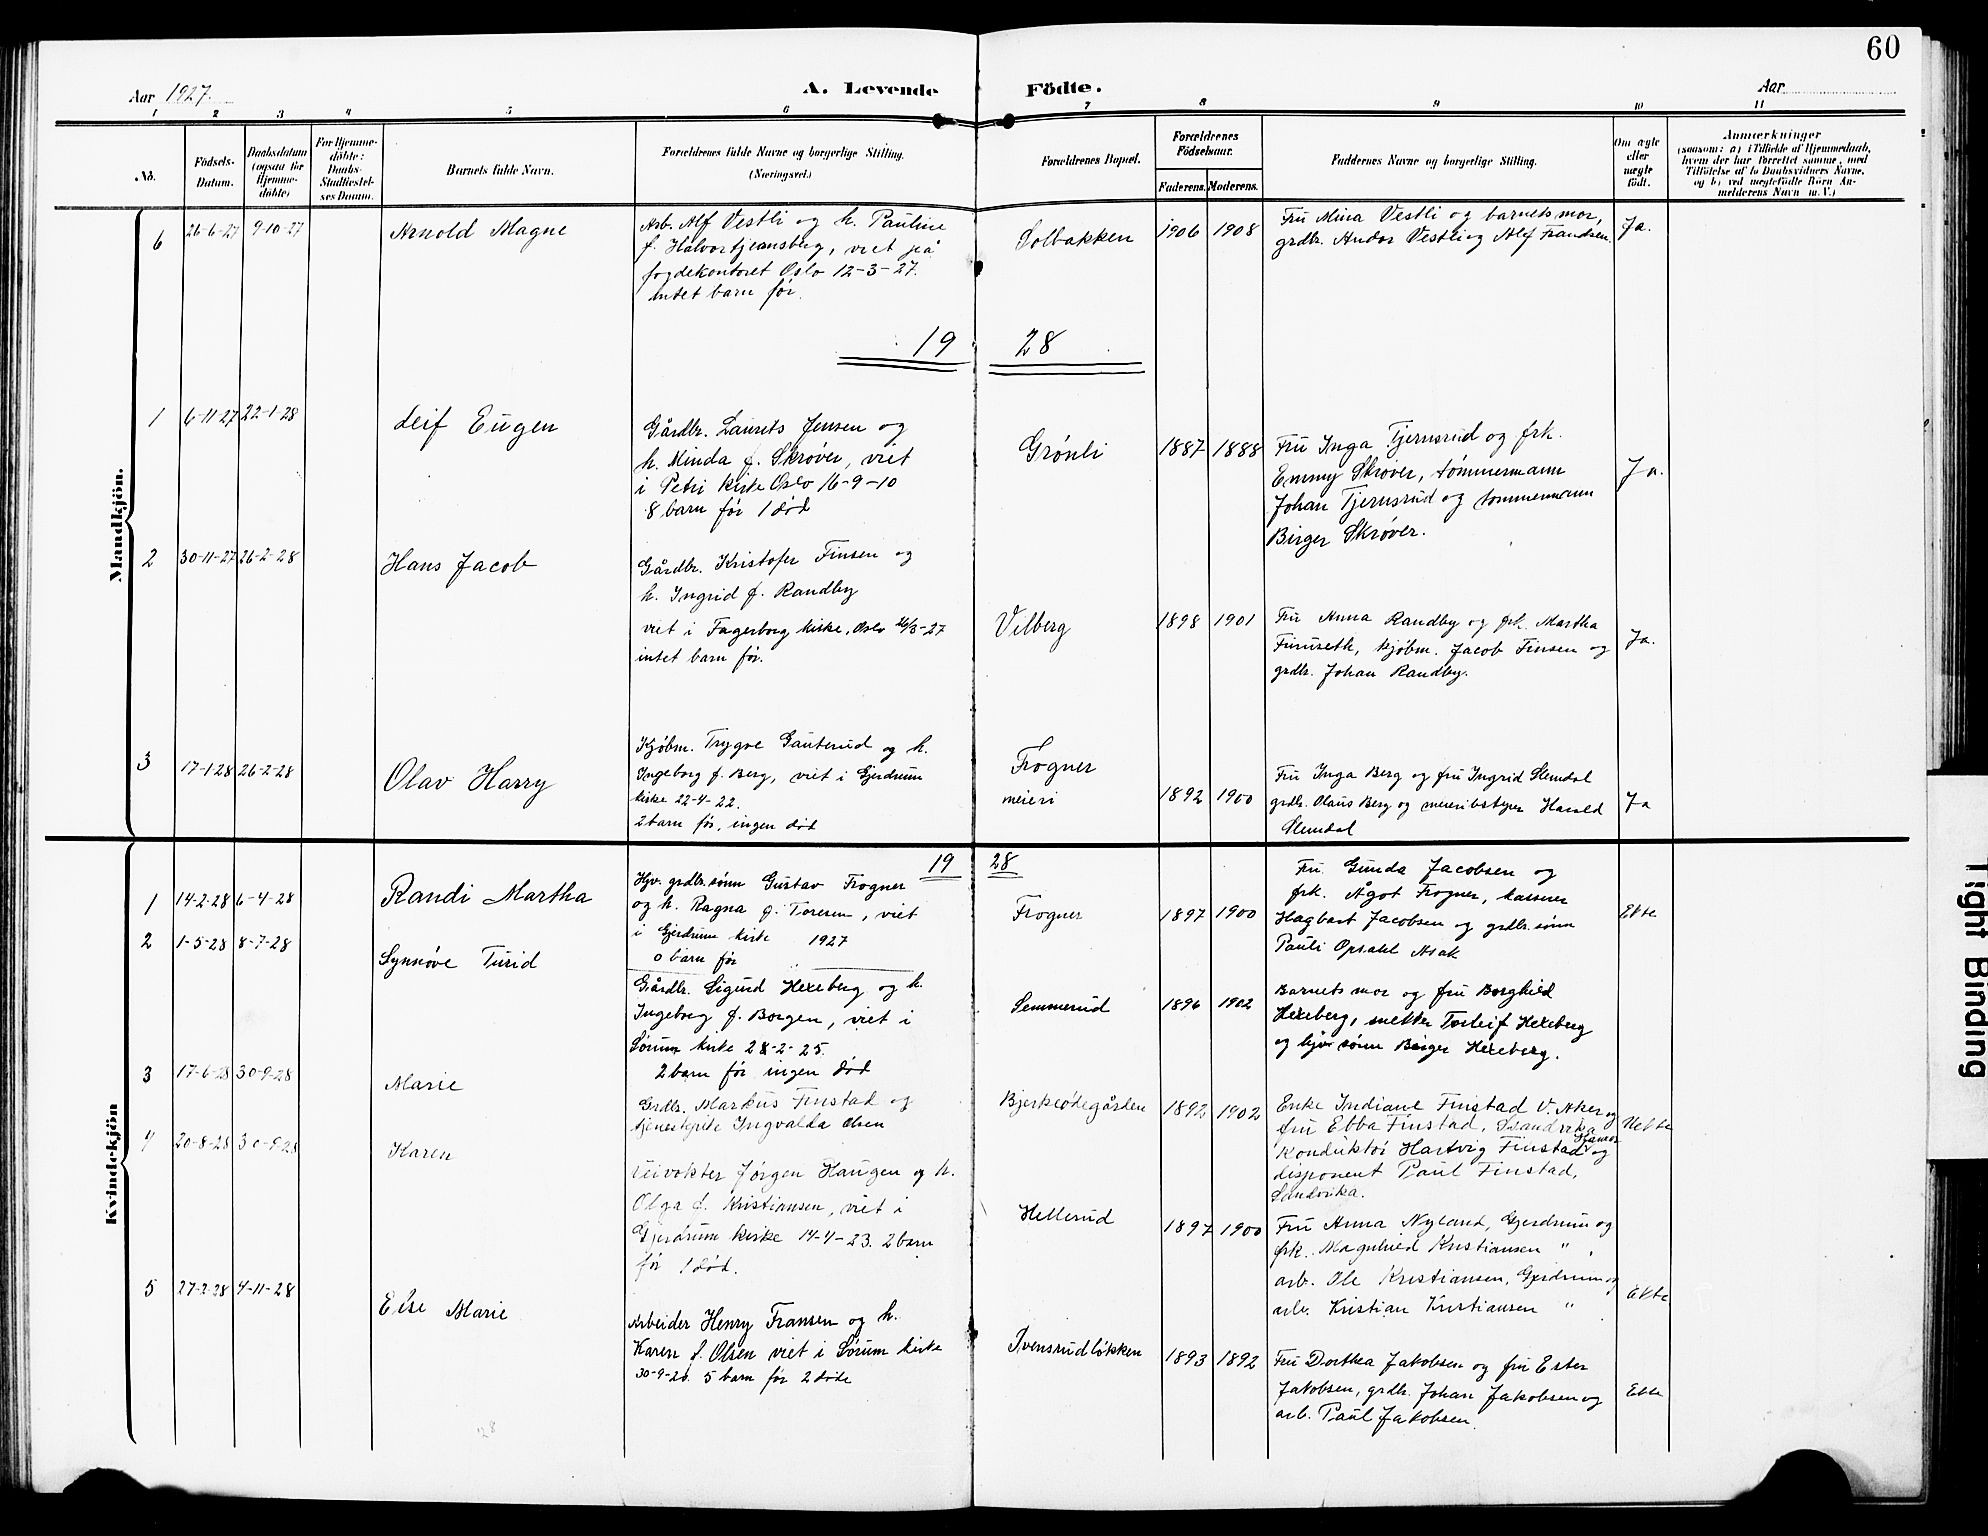 60
Aar 1927.
A. Levende Födte.
Aar
1 2 3 4 5 6 7 8 9 10 11
No.
Födsels-Datum.
Daabsdatum (ogsaa for Hjemme-döbte)
For Hjemme-döbte: Daabs-Stadfæstel-ses Datum.
Barnets fulde Navn.
Forældrenes fulde Navne og borgerlige Stilling. (Næringsvei.)
Forældrenes Bopæl.
Forældrenes Födselsaar.
Faderens. Moderens.
Faddernes Navne og borgerlige Stilling.
Om ægte eller uægte födt.
Anmærkninger
(saasom: a) i Tilfælde af Hjemmedaab, hvem der har forrettet samme, med Tilföielse af to Daabsvidners Navne, og b) ved uægtefödte Börn An-melderens Navn m. V.)
Mandkjön.
6 26-6-27 9-10-27 Arnold Magne
Arb. Alf Vestli og h. Pauline
f. Halvorstjeansberg, viet på
fogdekontoret Oslo 12-3-27.
Intet barn før.
Solbakken 1906 1908
Fru Mina Vestli og barnets mor,
grdbr. Andor Vestli og Alf Frandsen.
Ja.
19 28
1 6-11-27 22-1-28 Leif Eugen
Gårdbr. Laurits Jensen og
h. Minda f. Skrøver, viet
i Petri kirke Oslo 16-9-10
8 barn før 1 død
Grønli 1887 1888
Fru Inga Tjernsrud og frk.
Emmy Skrøver, tømmermann
Johan Tjernsrud og tømmermann
Birger Skrøver.
Ja.
2 30-11-27 26-2-28 Hans Jacob
Gårdbr. Kristofer Finsen og
h. Ingrid f. Randby
viet i Fagerborg kirke, Oslo 26/3-27
intet barn før.
Vilberg 1898 1901
Fru Anna Randby og frk. Martha
Furuseth, kjøbm. Jacob Finsen og
grdbr. Johan Randby.
Ja.
3 17-1-28 26-2-28 Olav Harry
Kjøbm. Trygve Gauterud og h.
Ingeborg f. Berg, viet i Gjerdrum
kirke 22-4-22.
2 barn før, ingen død
Frogner
meieri
1892 1900
Fru Inga Berg og fru Ingrid Slemdal
grdbr. Olaus Berg og meieribstyrer Harald
Slemdal
Ja
Kvindekjön
19 28
1 14-2-28 6-4-28 Randi Martha
Hjv. grdbr.sønn Gustav Frogner
og h. Ragna f. Toresen, viet
i Gjerdrum kirke 1927
0 barn før
Frogner 1897 1900
Fru Gunda Jacobsen og
frk. Ågot Frogner, kasserer
Hagbart Jacobsen og grdbr.sønn
Pauli Opsahl Asak
Ekte
2 1-5-28 8-7-28 Synnøve Turid
Gårdbr. Sigurd Hexeberg og h.
Ingeborg f. Borgen, viet i
Sørum kirke 28-2-25.
2 barn før ingen død
Semmerud 1896 1902
Barnets mor og fru Borghild
Hexeberg, snekker Torleif Hexeberg
og hjv sønn Birger Hexeberg.
3 17-6-28 30-9-28 Marie
Grdbr. Markus Finstad og
tjenestepike Ingvalda Olsen
Bjerkeødegården 1892 1902
Enke Indiane Finstad V. Aker og
fru Ebba Finstad, Sandvika
Konduktør Hartvig Finstad og
disponent Paul Finstad,
Sandvika.
Uekte
4 20-8-28 30-9-28 Karen
Veivokter Jørgen Haugen og h.
Olga f. Kristiansen, viet i
Gjerdrum kirke 14-4-23. 2 barn
før 1 død.
Hellerud 1897 1900
Fru Anna Nyland, Gjerdrum og
frk. Magnhild Kristiansen "
arb. Ole Kristiansen, Gjerdrum og
arb. Kristian Kristiansen "
Ekte
5 27-2-28 4-11-28 Else Marie
Arbeider Henry Fransen og h.
Karen f. Olsen viet i Sørum kirke
30-9-26. 5 barn før 2 døde
1893 1892
Fru Dorthea Jakobsen og fru Ester
Jakobsen, grdbr. Johan Jakobsen og
arb. Paul Jakobsen.
Ekte
28
Tight Binding